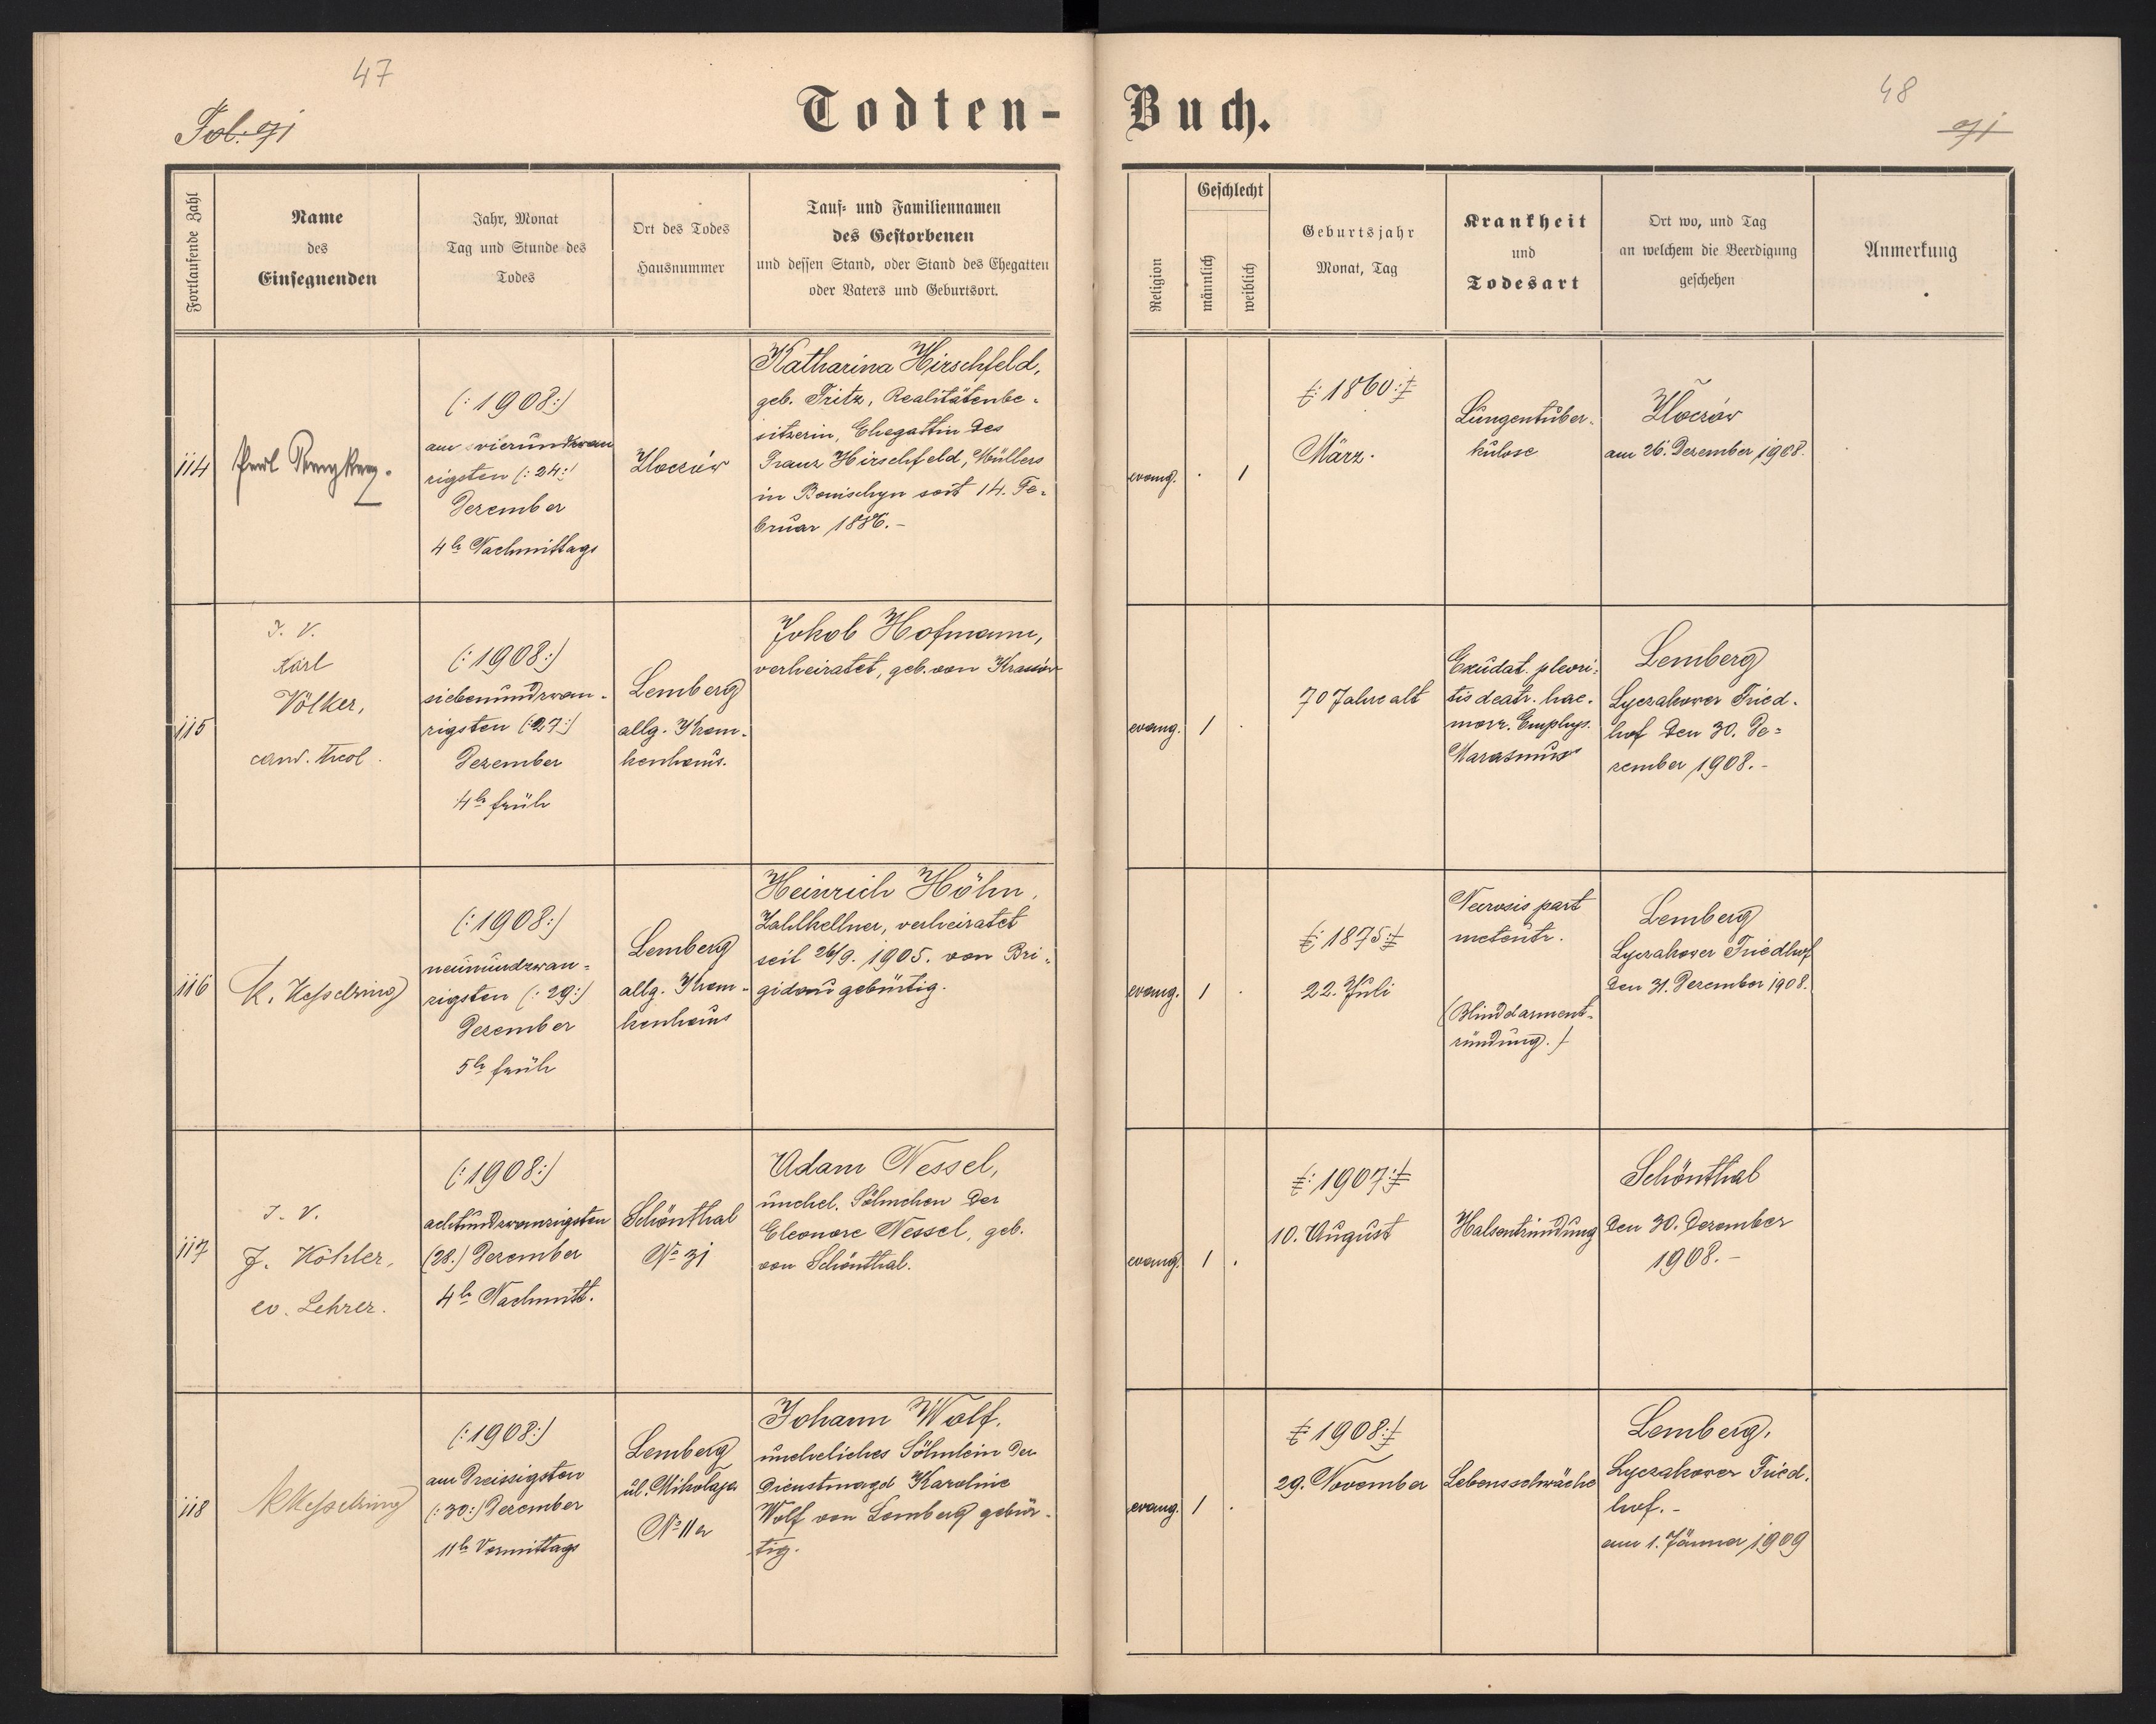 47
48
Fol. 91
91
Todten-Buch.
Fortlaufende Zahl
Name
des
Einsegnenden
Jahr, Monat
Tag und Stunde des
Todes
Ort des Todes
Hausnummer
Tauf- und Familiennamen
des Gestorbenen
und dessen Stand, oder Stand des Ehegatten
oder Vaters und Geburtsort.
Religion
Geschlecht
männlich
weiblich
Geburtsjahr
Monat, Tag
Krankheit
und
Todesart
Ort wo, und Tag
an welchem die Beerdigung
geschehen
Anmerkung
114
(: 1908 :)
am vierundzwan
zigsten (: 24 :)
Dezember
4h Nachmittags
Zloczów
Katharina Hirschfeld,
geb. Fritz, Realitätenbe-
sitzerin, Ehegattin des
Franz Hirschfeld, Müllers
in Bonischyn seit 14. Fe-
bruar 1886.-
evang.
1
(: 1860 :)
März.
Lungentuber-
kulose
Zloczów
am 26. Dezember 1908.
115
I. V.
Karl
Völker,
cand. theol.
(: 1908 :)
siebenundzwan-
zigsten (: 27 :)
Dezember
4h früh
Lemberg
allg. Kran-
kenhaus.
Jakob Hofmann,
verheiratet, geb. von
evang.
1
70 Jahre alt
Exudat. pleuri-
tis deatr. hae-
morr. Emphys.
Marasmus
Lemberg
Lyczakower Fried-
hof den 30. De-
zember 1908.-
116
K. Kesselring
(: 1908 :)
neunundzwan-
zigsten (: 29 :)
Dezember
5h früh
Lemberg
allg. Kran-
kenhaus
Heinrich Höhn,
Zahlkellner, verheiratet
seit 26/9. 1905. von Bri-
gidau gebürtig.
evang.
1
(: 1875 :)
22. Juli
Necrosis part
(Blinddarment-
zündung.)
Lemberg
Lyczakower Friedhof
den 31. Dezember 1908.
117
I. V.
J. Köhler,
ev. Lehrer.
(: 1908 :)
achtundzwanzigsten
(28.) Dezember
4h Nachmitt.
Schönthal
No 31
Adam Nessel,
unehel. Söhnchen der
Eleonore Nessel, geb.
von Schönthal.
evang.
1
(: 1907 :)
10. August
Halsentzündung
Schönthal
den 30. Dezember
1908.-
118
KKesselring
(: 1908 :)
am dreissigsten
(: 30 :) Dezember
11h Vormittags
Lemberg
ul. Mikołaja
No 11a
Johann Wolf,
uneheliches Söhnlein der
Dienstmagd Karoline
Wolf von Lemberg gebür-
tig.
evang.
1
(: 1908 :)
29. November
Lebensschwäche
Lemberg,
Lyczakower Fried-
hof.-
am 1. Jänner 1909